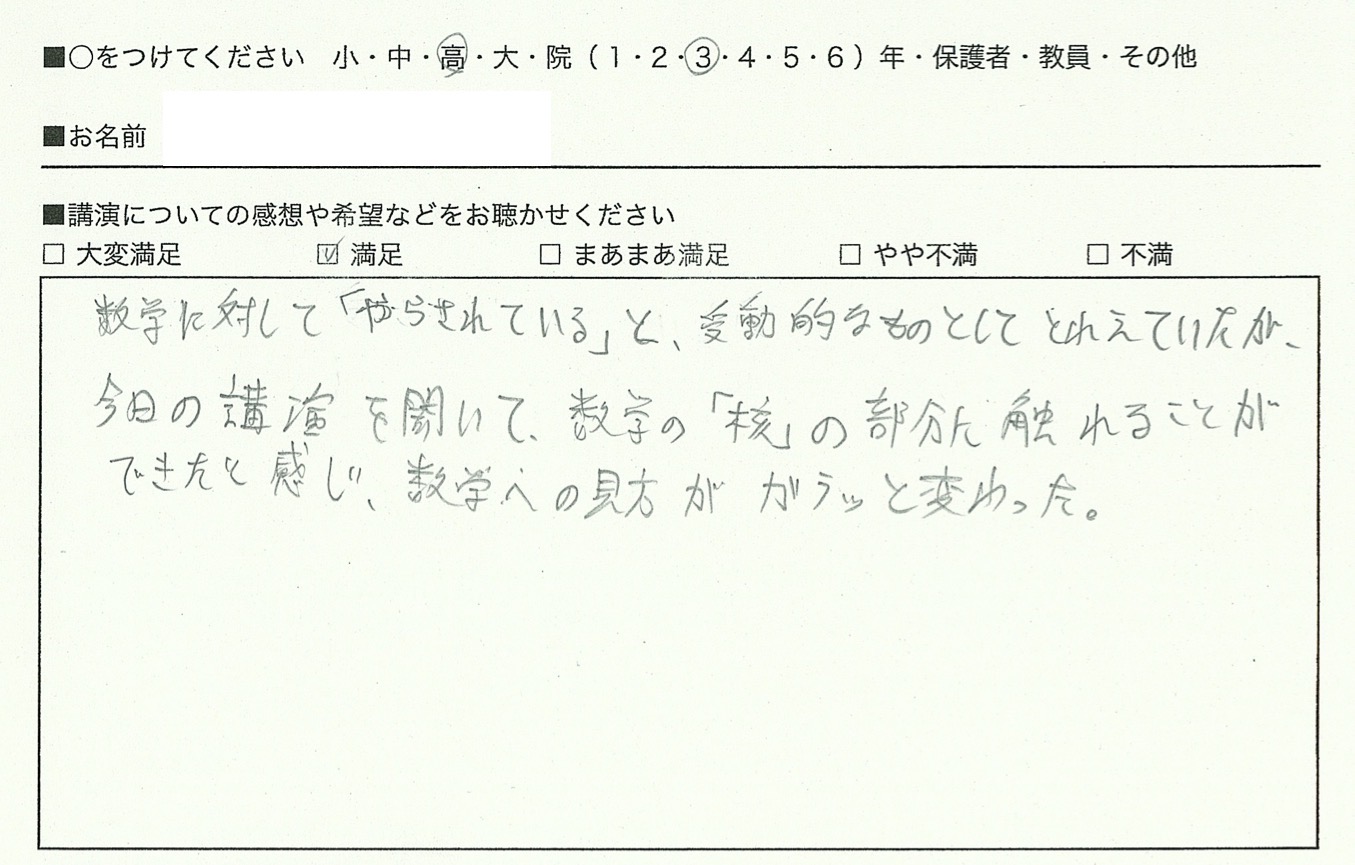 ■○をつけてください 小・中・高・大・院（1・2・3・4・5・6）年・保護者・教員・その他
■お名前
■講演についての感想や希望などをお聴かせください
□ 大変満足 ☑ 満足 □ まあまあ満足 □ やや不満 □ 不満
数学に対して「やらされている」と、受動的なものとしてとらえていたが、
今日の講演を聞いて、数学の「核」の部分に触れることが
できたと感じ、数学への見方がガラッと変わった。